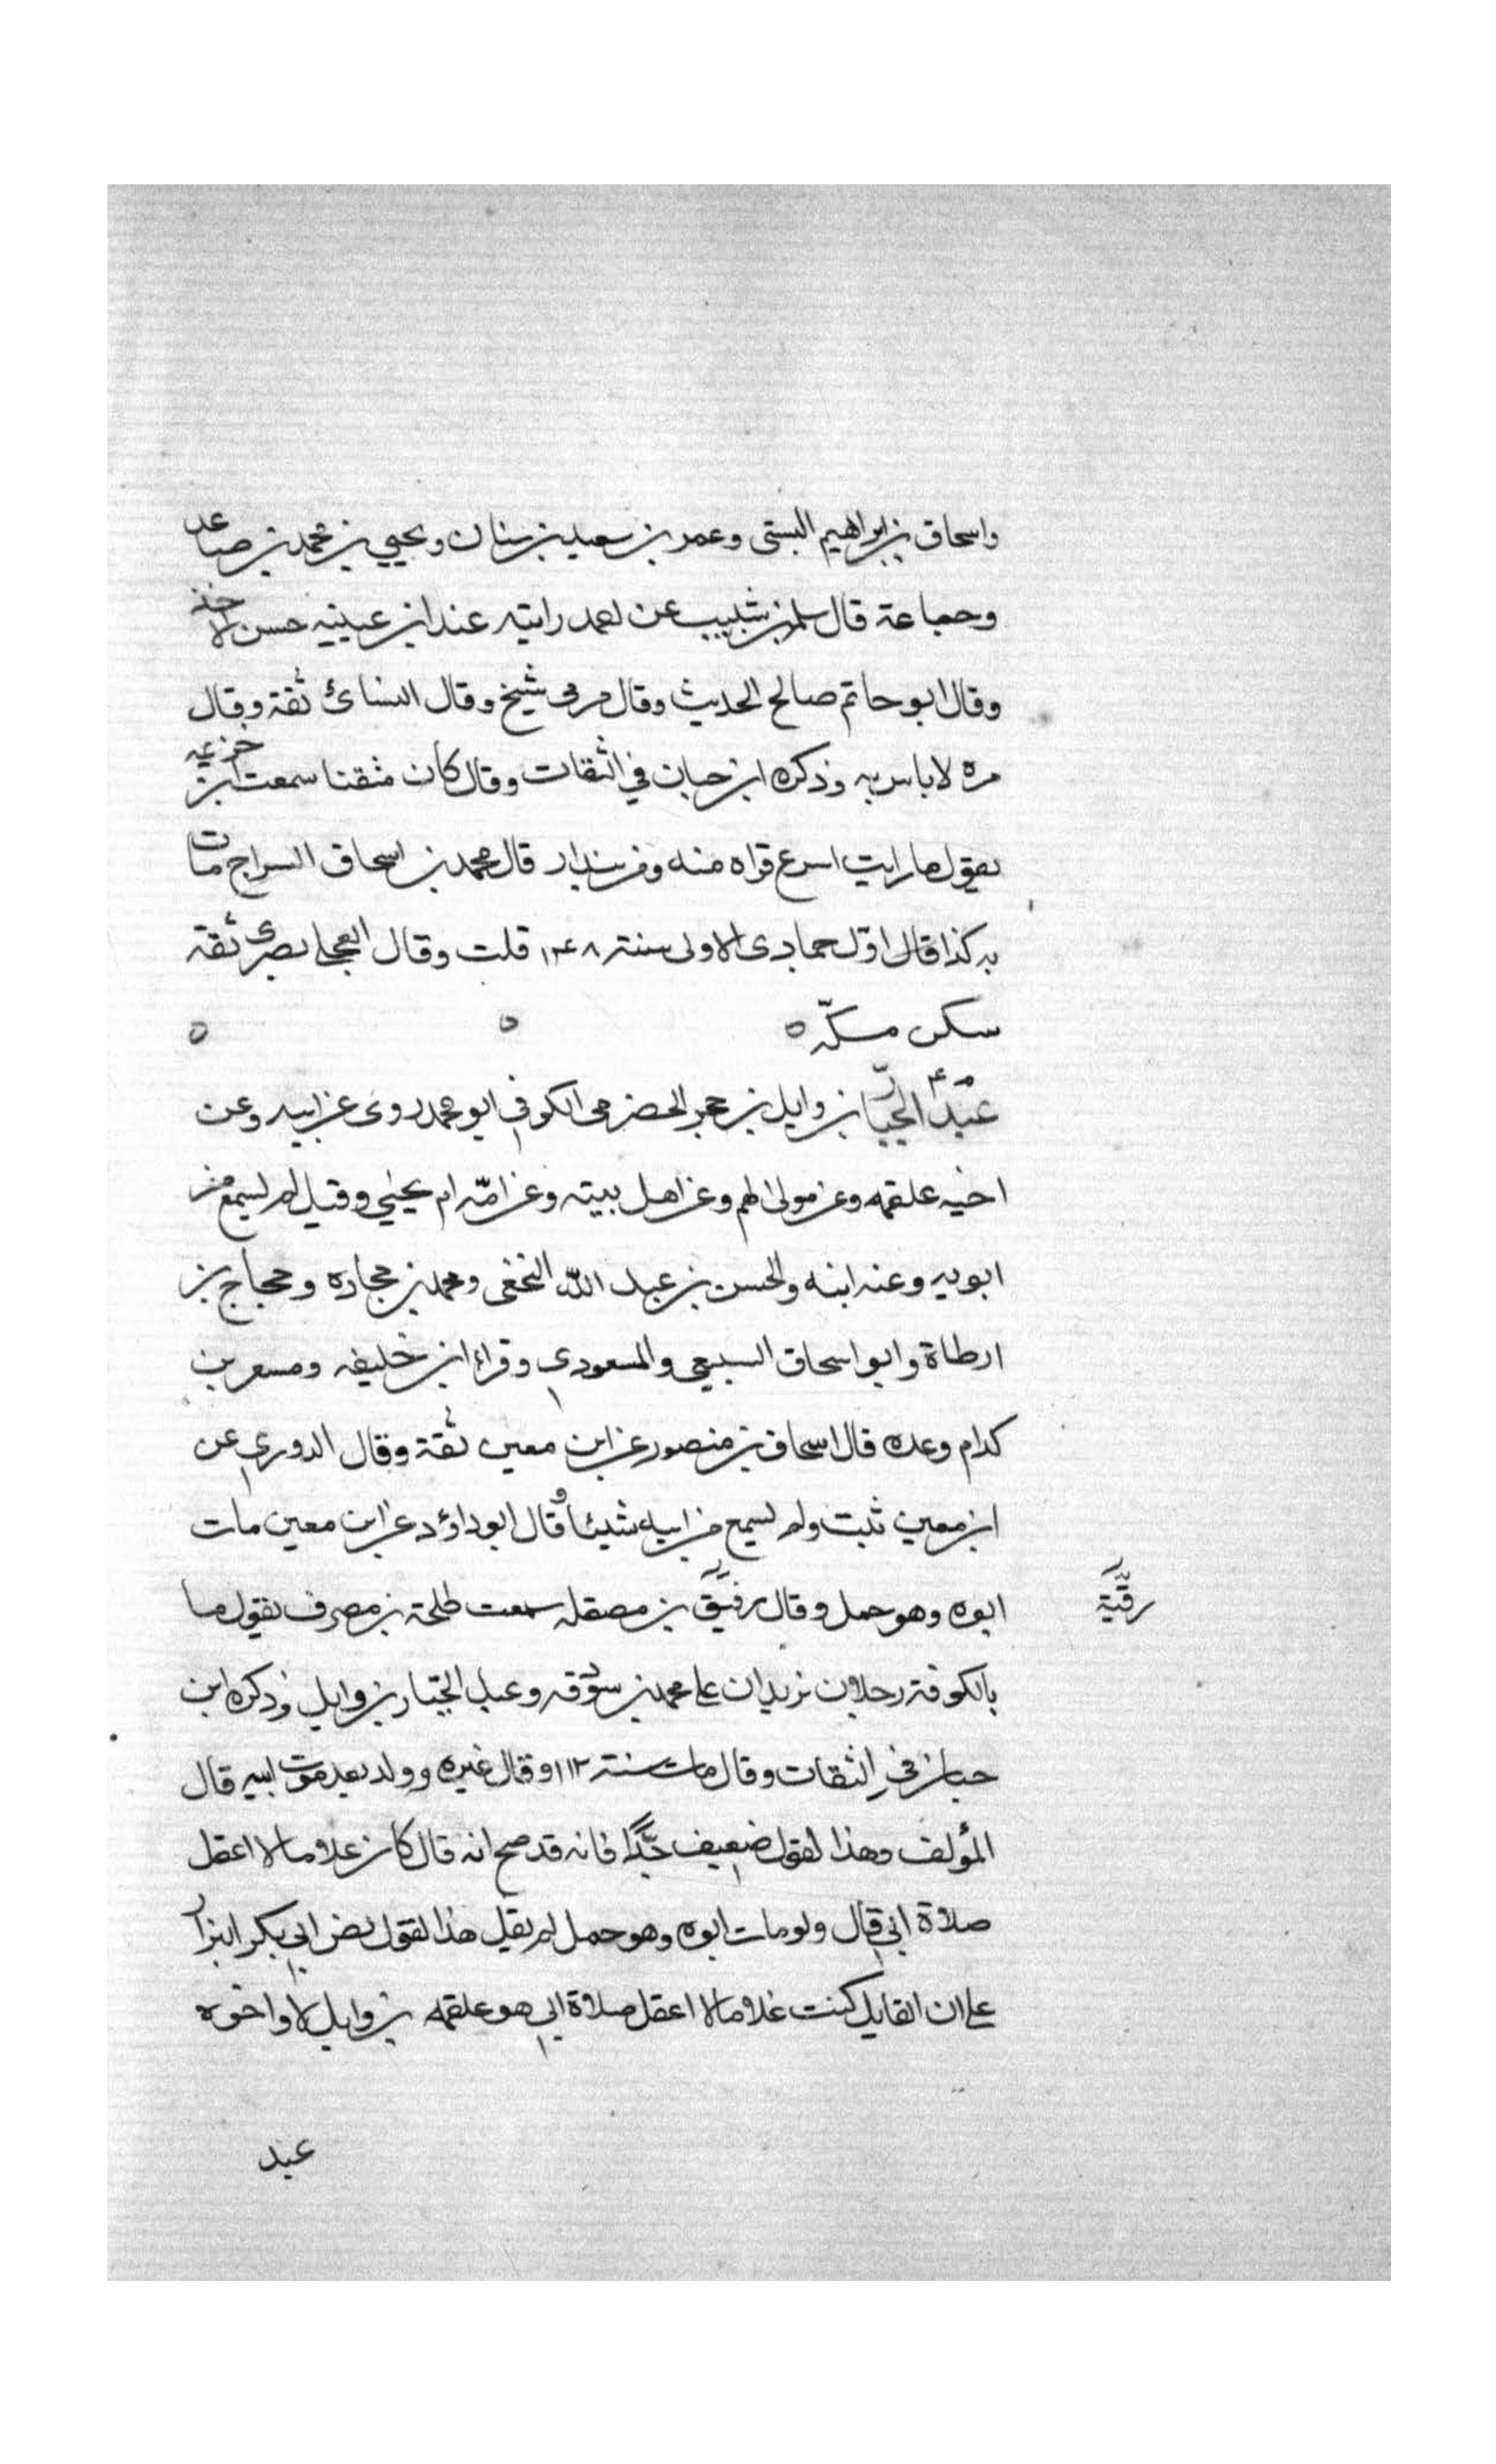 واسحاق بن ابراهيم البستى وعمر بن سعيد بن سنان ويحيي بن محمد بن صاعد
وجماعة قال سلمة بن شبيب عن احمد رايته عند ابن عيينه حسن الاخذ
وقال ابو حاتم صالح الحديث وقال مرة شيخ وقال النسائ ثقة وقال
مره لا باس به وذكره ابن حبان في الثقات وقال كان متقنا سمعت ابن خزيمه
يقول ما رايت اسرع قراه منه ومن بندار قال محمد بن اسحاق السراج مات
به كذا قال اول جمادى الاولى سنة ٢٤٨ قلت وقال العجلي بصرى ثقة
سكن مكّه ٥ ٥ ٥
م ٤ عبد الجبّار بن وايل بن حجر الحضرمى الكوفي ابو محمد روى عن ابيه وعن
اخيه علقمه وعن مولى لهم وعن اهل بيته وعن امّه ام يحيي وقيل لم يسمع من
ابويه وعنه ابنه والحسن بن عبد الله النخعى ومحمد بن حجاده وحجاج بن
ارطاة وابو اسحاق السبيعى والمسعودي وقراء ابن خليفه ومسعر بن
كدام وعده قال اسحاق بن منصور عن ابن معين ثقة وقال الدوري عن
ابن معين ثبت ولم يسمع من ابيه شيئا وقال ابو داؤد عن ابن معين مات
ابوه وهو حمل وقال رقيّق بن مصقله سمعت طلحة بن مصرف يقول ما
رقبّة
بالكوفة رجلان يزيدان على محمد بن سوقه وعبد الجبّار بن وايل وذكره ابن
حبان في الثقات وقال مات سنة ١١٢ وقال غيره وولد بعد موت ابيه قال
المؤلف وهذا القول ضعيف جدًّا فانه قد صح انه قال كان غلاما لا اعقل
صلاة ابي قال ولو مات ابوه وهو حمل لم يقل هذا القول نص ابي بكر البزار
على ان القايل كنت غلاما لا اعقل صلاة ابي هو علقمه بن وايل لا اخوه
عبد